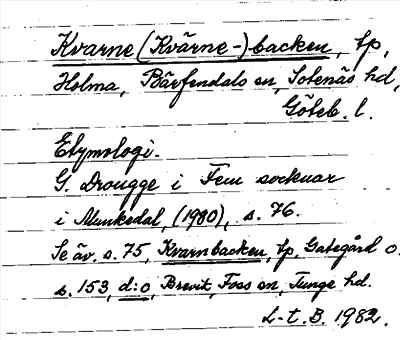 Kvarne (Kvärne-)backen, tp,
Holma, Bärfendals sn, Sotenäs hd,
Göteb. l.
Etymologi.
G. Drougge i Fem socknar
i Munkedal, (1980), s. 76.
Se äv. s. 75, Kvarnbacken, tp, Gategård o.
s. 153, d:o, Brevik, Foss sn, Tunge hd.
L-t. B. 1982.